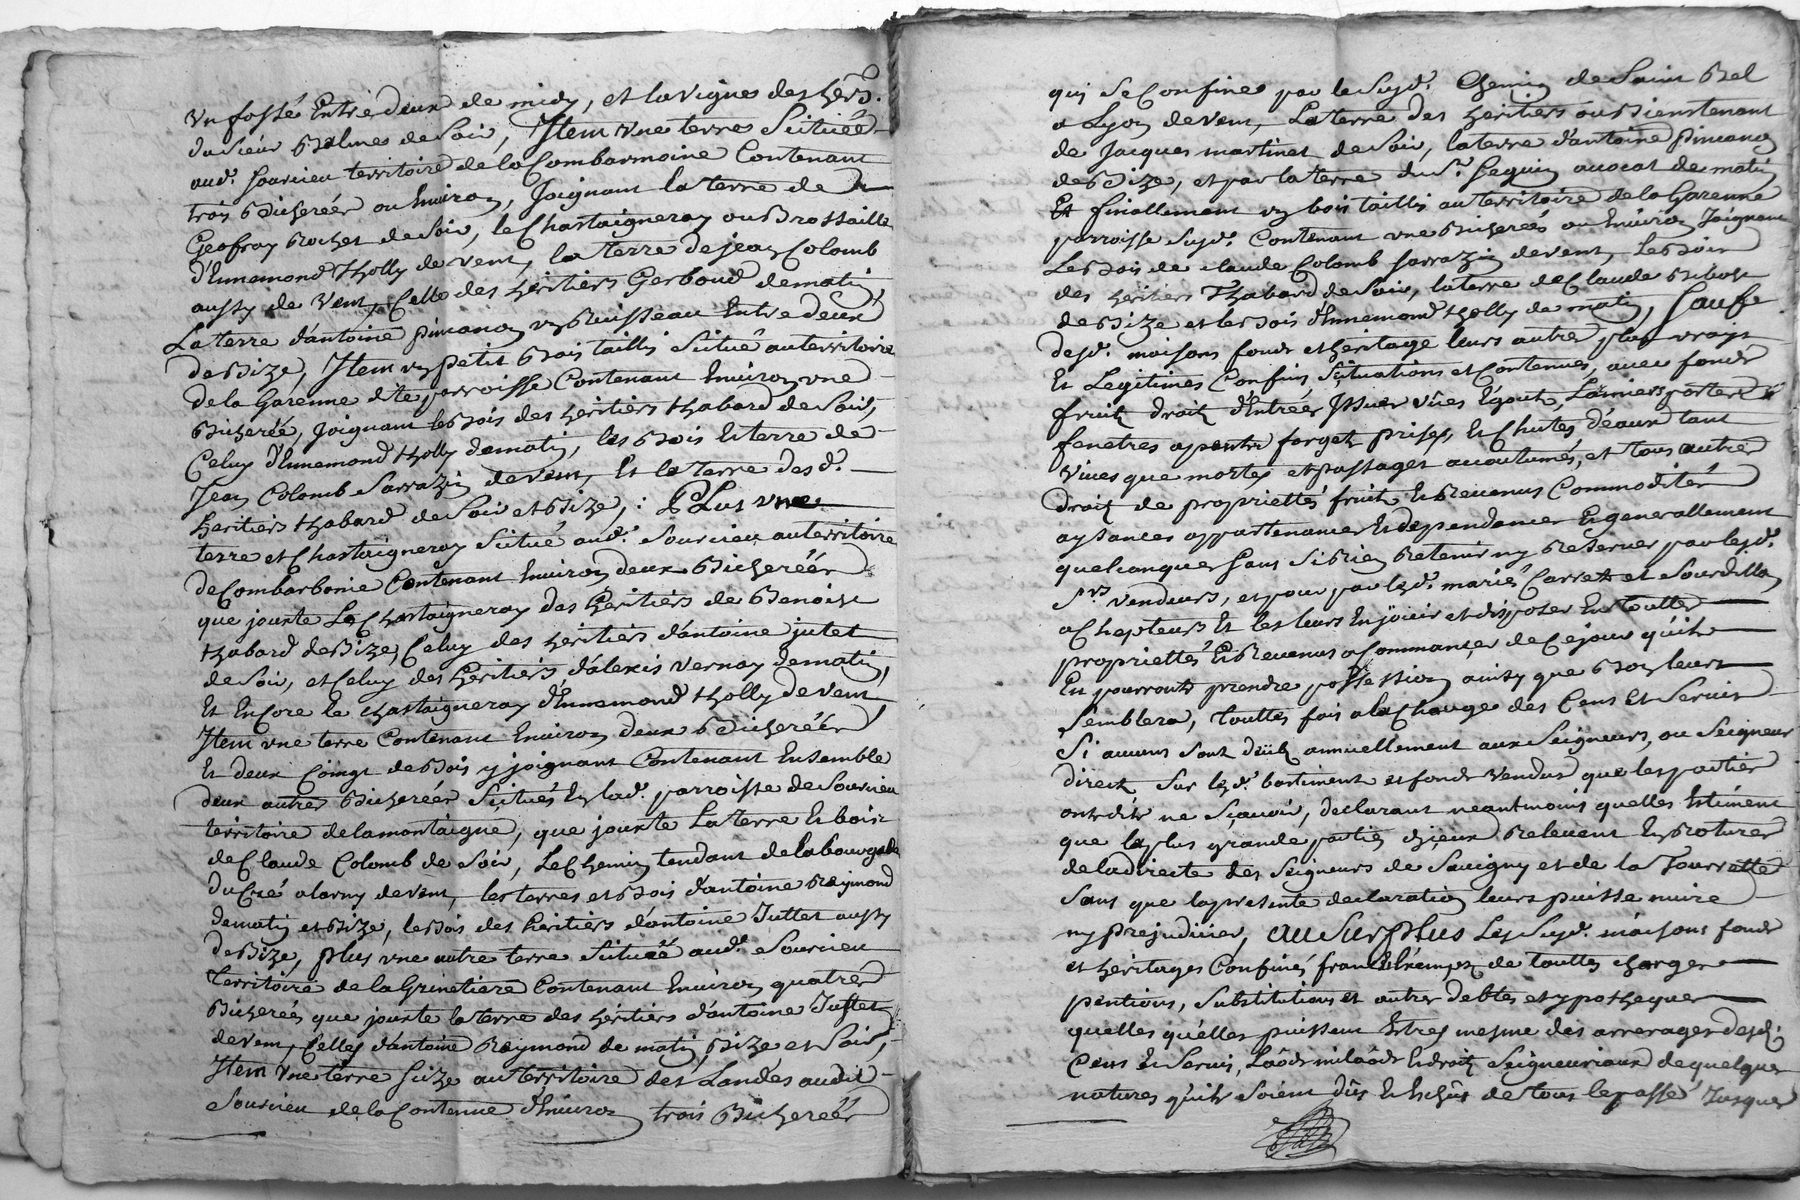 un fossé Entredeux de midy, et la vigne des hers.
du sieur Balme de soir, Item une terre Scituéé
aud. sourcieu territoire de la Combarmoine Contenant
trois Bicheréés ou Environ, Joignant la terre de
Geofray Rochet de soir, le Chastaigneray ou Brossaille
d'Ennemond tholly de vent, la terre de jean Colomb
aussy de vent, Celle des héritiers Gerboud de matin,
La terre d'antoine pinanon un Ruisseau Entredeux
de Bize, Item un petit Bois taillis Scitué au territoire
de la Garenne dte parroisse Contenant Environ une
Bicheréé, Joignant les bois des héritiers thabard de soir,
Celuy d'Ennemond tholly de matin, les Bois Et terre de
Jean Colomb Sarrazin de vent, Et la terre desd.
heritiers thabard de Soir et Bize, : PLus une
terre et Chastaigneray Scitué aud. Sourcieu au territoire
de Combarbonie Contenant Environ deux Bicheréés
que jouxte Le Chastaigneray des héritiers de Benoist
thabard de Bize, Celuy des héritiers d'antoine jutet
de soir, et Celuy des héritiers d'alexis vernay de matin,
Et Encore le chastaigneray d'Ennemond tholly de vent,
Item une terre Contenant Environ deux Bicheréés
Et deux Coings de Bois y joignant Contenant Ensemble
deux autres Bicheréés Scitués En lad. parroisse de Sourcieu
territoire de lamontaigne, que jouxte La terre Et bois
de Claude Colomb de Soir, Le Chemin tendant de la bourgade
du Cré a larny de vent, les terres et Bois d'antoine Reymond
de matin et Bize, les bois des héritiers d'antoine Juttet aussy
de Bize, plus une autre terre Scituéé aud. Sourcieu
Territoire de la Grinetiere Contenant Environ quatre
Bicheréés que jouxte la terre des héritiers d'antoine Juttet
de vent, Celles d'antoine Reymond de matin, Bize et Soir,
Item une terre size au territoire des Landes audit
Sourcieu de la Contenue d'Environ trois Bicheréés
qui se Confine par le susd. Chemin de Saint Bel
a Lyon de vent, La terre des heritiers ou Bienstenant
de Jacques martinet de Soir, la terre d'antoine pinanon
de Bize, et par la terre du Sr. Seguin avocat de matin
Et finallement un bois taillis au territoire de la Garenne
parroisse susd. Contenant une Bicheréé ou Environ Joignant
Les Bois de claude Colomb sarrazin de vent, les Bois
des héritiers Thabard de Soir, la terre de Claude
de Bize et les Bois d'Ennemond tholly de matin, sauf
desd. maisons fonds et héritage leurs autres plus vrays
Et Legitimes Confins, Scituations et Contenues, avec fonds
fruits droits d'Entrées Issues vües Egouts, Larmiers portes
fenetres apentis forgets prises, Et Chutes d'éaux tant
vives que mortes et passages accoutumés, et tous autres
droits de proprietté fruits Et Revenus Commodités
aysances appartenances Et dependances Et generallement
quelconques sans sirien Retenir ny Reserver par lesd.
srs vendeurs, et pour par lesd. mariés Carret et Sourdillon
achepteurs Et les leurs En joüir et disposer En toutte
propriettés Et Revenus a Commancer de Ce jour qu'ils
En pourront prendre possession ainsy que Bon leurs
Semblera, touttes fois a la Charge des Cens Et Servis
Si aucuns sont düs annuellement aux seigneurs, ou Seigneur
directs sur lesd. bastiments et fonds vendus que les parties
ont dit ne sçavoir, declarant neantmoins quelles Estiment
que la plus grande partie d'iceux Relevent En Roture
de la directe des Seigneurs de Savigny et de la Tourrette
sans que la presente declaration leurs puisse nuire
ny prejudicier, au surplus Les Susd. maisons fonds
et héritages Confinés francs Et Exempts de touttes charges
pentions, substitutions et autres debtes et ypotheques
quelles qu'elles puissent Estres mesme des arrerages desd.
Cens Et Servis, Laods milaods Et droits Seigneuriaux de quelques
natures qu'ils Soient düs Et Echûs de tous le passé Jusques